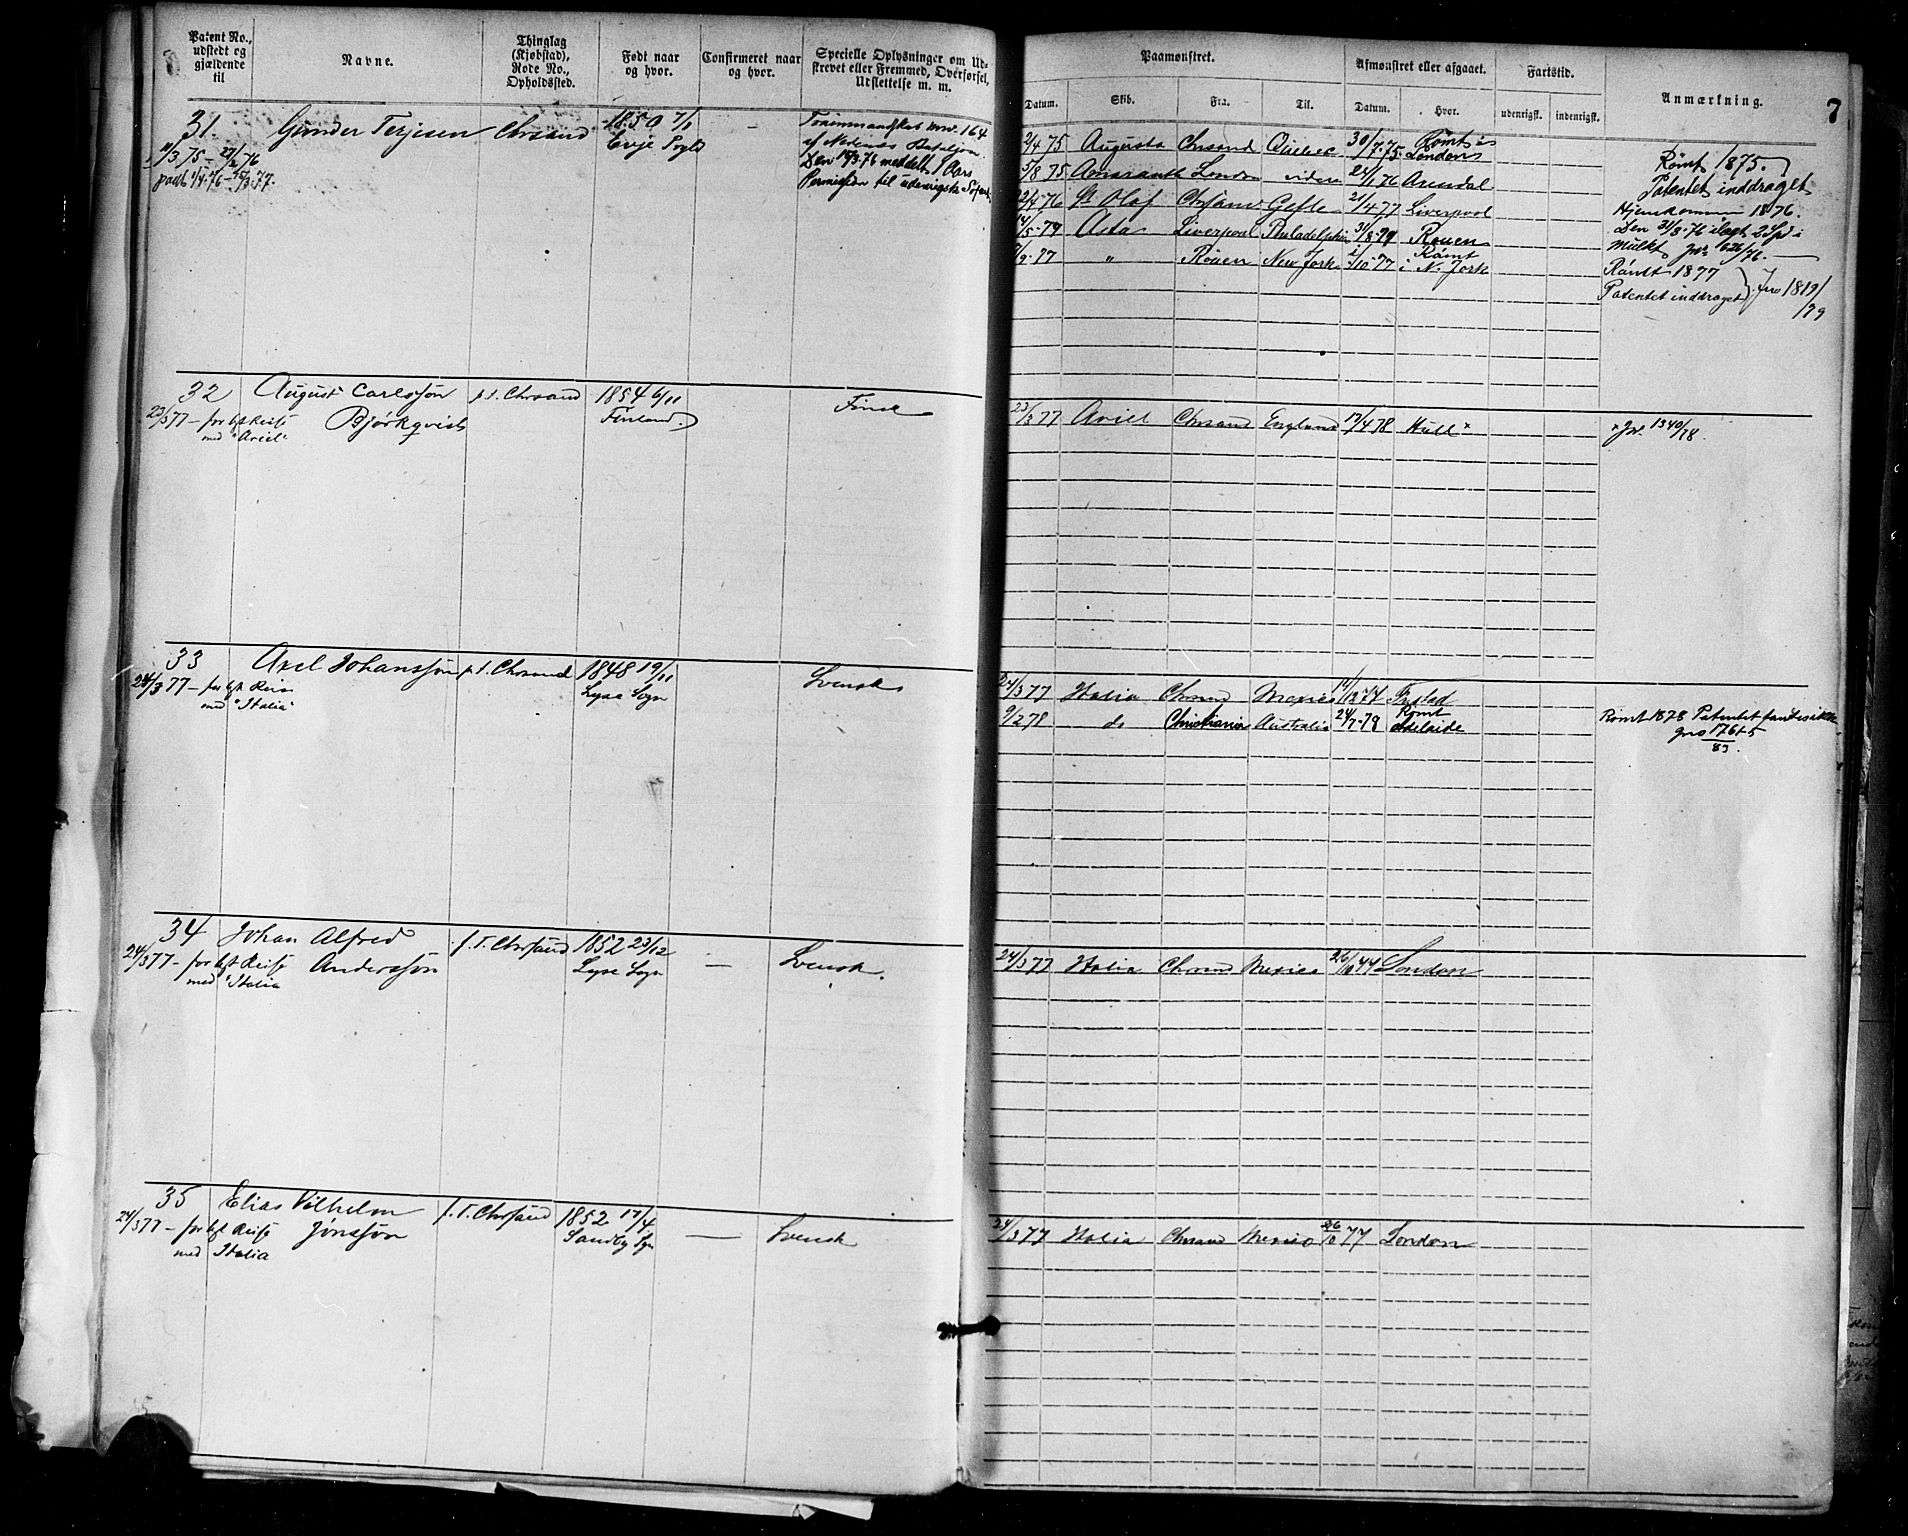 Patent No.,
udstedt og
gjældende
til
Navne.
Thinglag
(Kjøbstad),
Rode No.,
Opholdssted.
Født naar
og hvor.
Confirmeret naar
og hvor.
Specielle Oplysninger om Ud-
skrevet eller Fremmed, Overførsel,
Udslettelse m. m.
Paamønstret.
Afmønstret eller afgaaet.
Fartstid.
Anmærkning.
7
Datum.
Skib.
Fra.
Til.
Datum.
Hvor.
udenrigst.
indenrigst.
31. Gunder Terjesen Chrsand 1850 7/1 –
11/3 75 – 27/2 76
Evje
padt 1/4 76 – 15/3 77.
Den 11/3 76 meddelt 1 Aars
Permission til udenrigsk
2/4 75 Augusta Chrsand Quebec 30/7 75 Rømt i London
5/8 75 Amaranth London videre 24/1 76 Arendal
22/4 76 St Olaf Chrsand Gefle 21/4 77 Liverpool
14/5 77 Asta Liverpool Philadelphia 31/8 77 Rouen
7/9 77 " Rouen New York 2/10 77 Rømt i N. York
Rømt 1875.
Patentet inddraget
Hjemkommen 1876.
Den 31/8 76
Mulkt Jnr 626/76.
Rømt 1877
Patentet inddraget Jno 1819/79
32 August Carlssøn p.t. Chrsand 1854 6/11
23/3 77 – for let Reise Bjørkqvist Finland. Finsk
med "Ariel"
23/3 77 Ariel Chrsand England 17/4 78 Hull x
x Jnr. 1340/78.
33 Axel Johanssøn p.t. Chrsand 1848 19/11
24/3 77 – for let Reise Lyse Sogn Svensk
med "Italia"
24/3 77 Italia Chrsand Mexico
9/2 78 do Christiania Australia 24/7 78 Rømt Adelaide
Rømt 1878 Patentet
Jno 1765/83.
34 Johan Alfred p.T. Chrsand 1852 23/12
24/3 77 – for let Reise Anderssøn Lyse Sogn — Svensk.
med "Italia
24/3 77 Italia Chrsand Mexico London
35 Elias Vilhelm p.T. Chrsand 1852 17/4
24/3 77 – for let Reise Jönssøn Sandby Sgn — Svensk
med Italia
24/3 77 Italia Chrsand Mexico 26/10 77 London